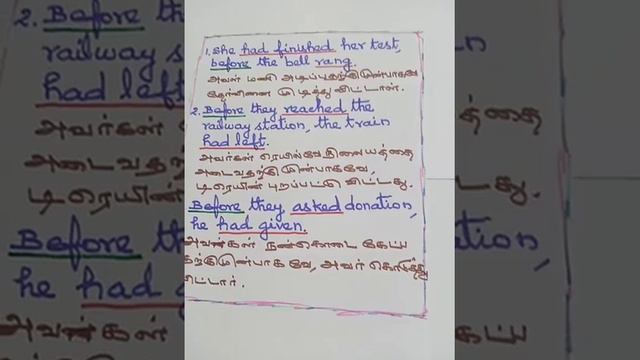 1. She had finished her test,
before the bell rang.
அவள் மணி அடிப்பதற்குமுன்பாகவே
தேர்வினை முடித்து விட்டாள்.
2. Before they reached the
railway station, the train
had left.
அவர்கள் ரெயில்வே நிலையத்தை
அடைவதற்குமுன்பாகவே,
டிரெயின் புறப்பட்டு விட்டது.
Before they asked donation,
he had given.
அவர்கள் நன்கொடை கேட்ப
தற்குமுன்பாகவே, அவர் கொடுத்து
விட்டார்.